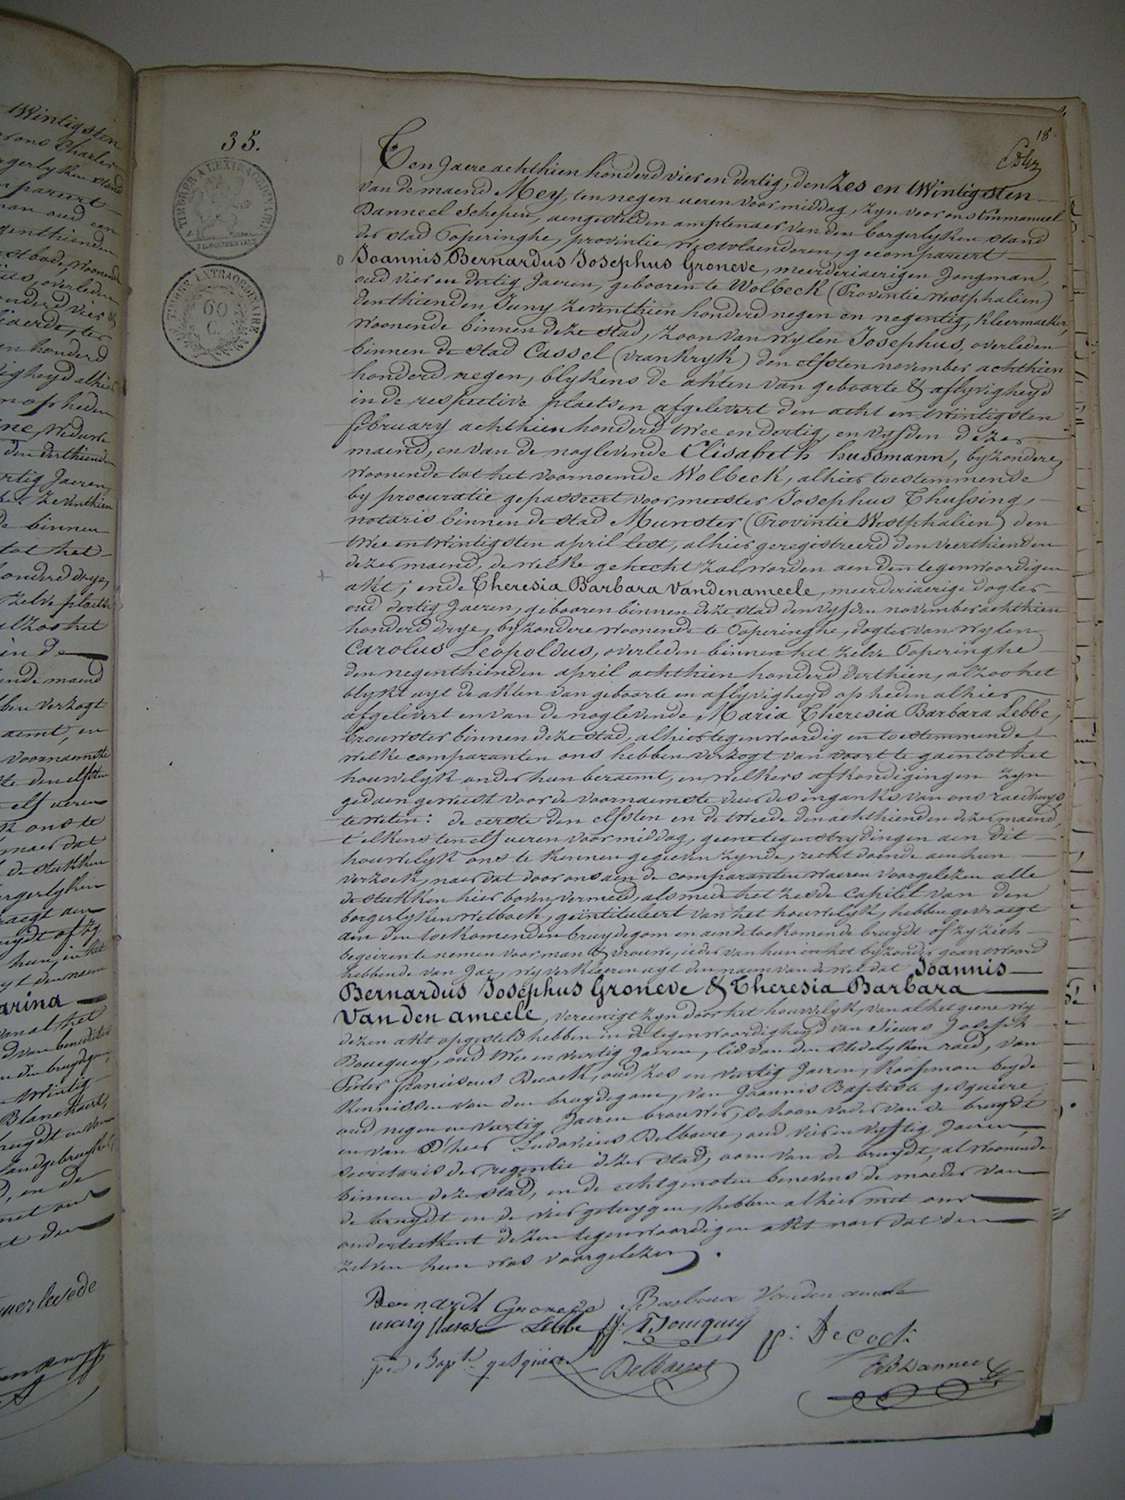 18
35.
Ten Jaere achthien honderd vier en dertig, den Zes en Twintigsten
van de maend Mey, ten negen ueren voormiddag, zyn voor ons Emmanuel
Danneel Schepen, aengestelden amptenaer van den borgerlyken stand
der stad Poperinghe, provintie Westvlaenderen, gecompareert
Joannis Bernardus Josephus Groneve, meerderjaerigen Jongman,
oud vier en dertig Jaeren, gebooren te Wolbeck (Provintie Westphalien)
den thienden Juny zeventhien honderd negen en negentig, Kleermaeker
woonende binnen deze stad, zoon van wylen Josephus, overleden
binnen de stad Cassel (Vrankryk) den elfsten november achthien
honderd negen, blykens de akten van geboorte & aflyvigheyd
in de respective plaetsen afgelevert den acht en twintigsten
february achthien honderd twee en dertig, en vyfden dezer
maend, en van de nog levende Elisabeth hussmann, byzondere,
woonende tot het voornoemde Wolbeck, alhier toestemmende
by procuratie gepasseert voor meester Josephus Thussing,
notaris binnen de stad Munster (Provintie Westphalien) den
twee en twintigsten april lest, alhier geregistreerd den veerthienden
dezer maend, de welke gehecht zal worden aen den tegenwoordigen
akt; ende Theresia Barbara Vandenameele, meerderjaerige dogter
oud dertig Jaeren, gebooren binnen deze stad den vyfden november achthien
honderd drye, byzondere woonende te Poperinghe, dogter van wylen
Carolus Leopoldus, overleden binnen het zelve Poperinghe
den negenthienden april achthien honderd derthien, alzoo het
blykt uyt de akten van geboorte en aflyvigheyd op heden alhier
afgelevert en van de nog levende Maria Theresia Barbara Lebbe,
brouwster binnen deze stad, alhier tegenwoordig en toestemmende
welke comparanten ons hebben verzogt van voort te gaen tot het
houwelyk onder hun beraemt, en welkers afkondigingen zyn
gedaen geweest voor de voornaemste deur des ingank's van ons raedhuys,
te weten: de eerste den elfsten en de tweede den achthienden dezer maend,
t'elkens ten elf ueren voormiddag, geene tegenstrydingen aen dit
houwelyk ons te kennen gegeven zynde, recht doende aen hun
verzoek, naer dat door ons aen de comparanten waeren voorgelezen alle
de stukken hier boven vermeld, als mede het zesde capittel van den
borgerlyken wetboek, geintituleert van het houwelyk, hebben gevraegt
aen den toekomenden bruydegom en aen de toekomende bruydt of zy zich
begeiren te nemen voor man & vrouwe, ieder van hun in het byzonder geantwoord
hebbende van Jae, wy verklaeren uyt den naem van de wet dat Joannis
Bernardus Josephus Groneve & Theresia Barbara
Van den ameele, vereenigt zyn door het houwelyk, van al het geene wy
dezen akt opgesteld hebben in de tegenwoordigheyd van Sieurs Joseph
Bouquey, oud twee en veertig Jaeren, lid van den stedelyken raed, van
Pieter franciscus Decock, oud zes en veertig Jaeren, koopman beyde
kennissen van den bruydegom, van Joannis Baptiste gesquiere
oud negen en veertig Jaeren brouwer, schoonvader van de bruydt
en van D'heer Ludovicus Delbaere, oud vier en vyftig Jaeren,
secretaris der regentie dezer stad, oom van de bruydt, al woonende
binnen deze stad, en de echtgenoten benevens de moeder van
de bruydt en de vier getuygen, hebben alhier met ons
onderteekent dezen tegenwoordigen akt naer dat den
zelven hun was voorgelezen.
Bernardt Groneve Barbara Vandenamele
Lebbe fs. Bouquey p: Decock
Jn Bapte gesquiere Delbaere